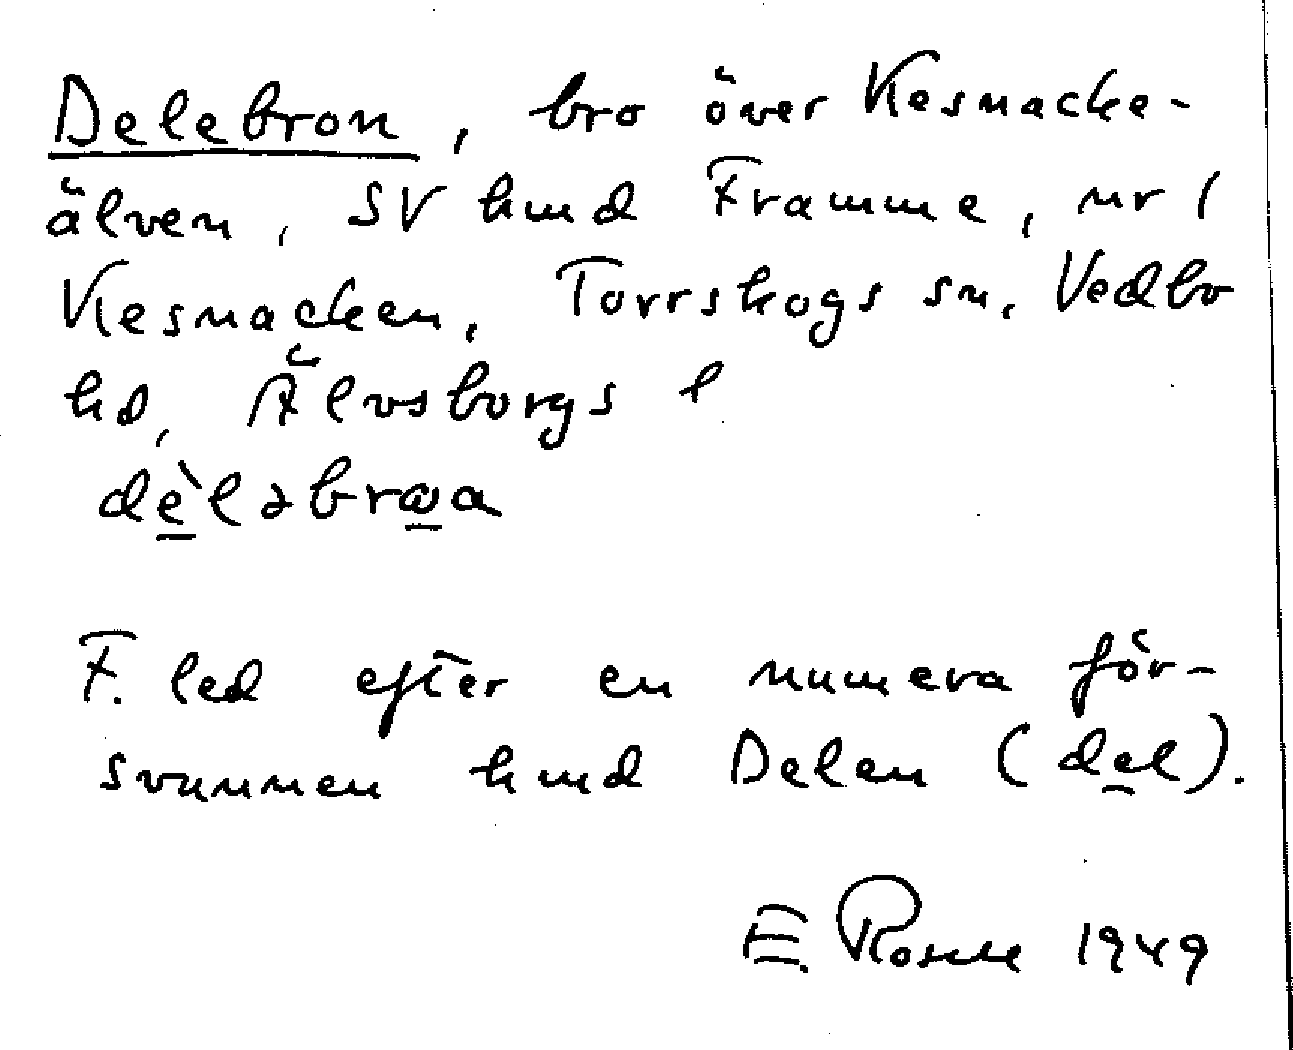 Delebron, bro över Kesnacke-
älven, SV hmd Framme, nr 1
Kesnacken, Torrskogs sn, Vedbo
hd, Älvsborgs l
dèləbrωa
F. led efter en numera för-
svunnen hmd Delen (del).
E. Rosell 1949